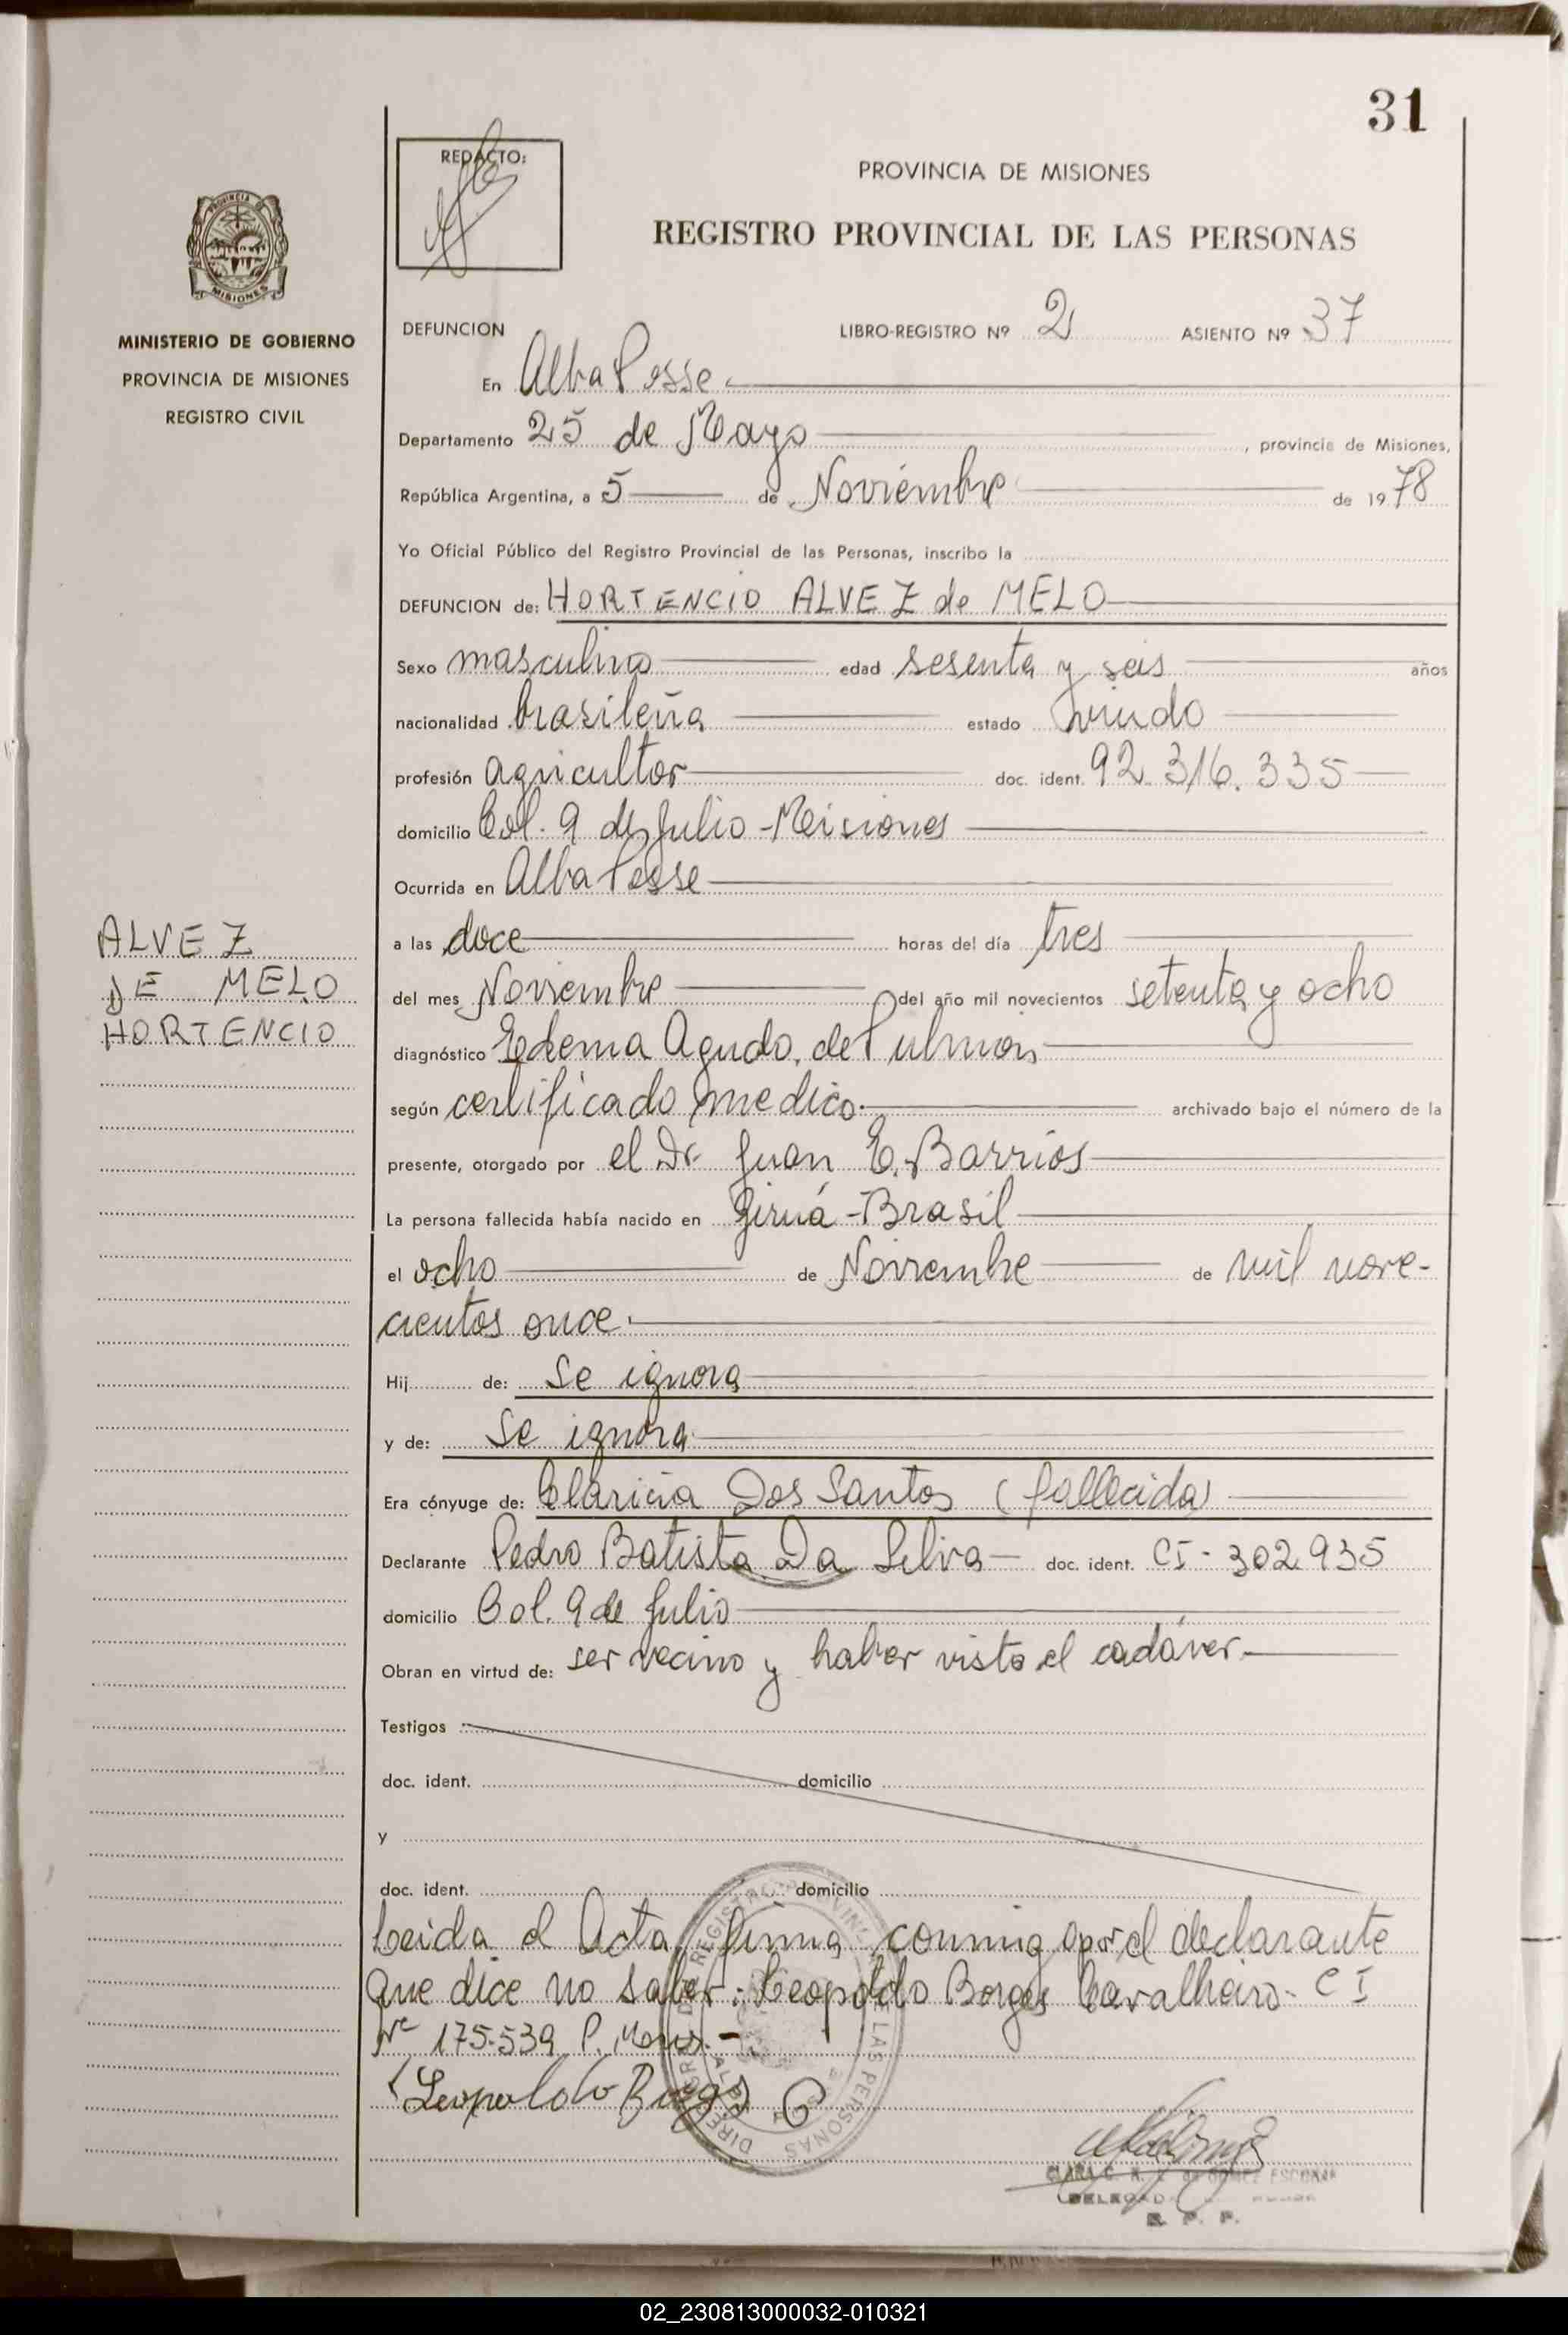 31
REDACTO:
PROVINCIA DE MISIONES
REGISTRO PROVINCIAL DE LAS PERSONAS
PROVINCIA DE
MISIONES
MINISTERIO DE GOBIERNO
PROVINCIA DE MISIONES
REGISTRO CIVIL
DEFUNCION LIBRO-REGISTRO Nº 2 ASIENTO Nº 37
En Alba Posse
Departamento 25 de Mayo, provincia de Misiones,
República Argentina, a 5 de Noviembre de 1978
Yo Oficial Público del Registro Provincial de las Personas, inscribo la
DEFUNCION de: HORTENCIO ALVEZ de MELO
Sexo masculino edad sesenta y seis años
nacionalidad brasileña estado viudo
profesión agricultor doc. ident. 92.316.335
domicilio Col. 9 de Julio - Misiones
Ocurrida en Alba Posse
a las doce horas del día tres
del mes Noviembre del año mil novecientos setenta y ocho
diagnóstico Edema Agudo de Pulmon
según certificado medico. archivado bajo el número de la
presente, otorgado por el Dr Juan E. Barrios
La persona fallecida había nacido en Giruá - Brasil
el ocho de Noviembre de mil nove-
cientos once.
Hij de: Se ignora
y de: Se ignora
Era cónyuge de: Dos Santos (fallecida)
Declarante Pedro Batista Da Silva doc. ident. CI - 302935
domicilio Col. 9 de Julio
Obran en virtud de: ser vecino y haber visto el cadáver.
Testigos
doc. ident. domicilio
y
doc. ident. domicilio
Leida el Acta, firma conmigo por el declarante
que dice no saber: Leopoldo Borges Cavalheiro - CI
Nº 175.539
Leopoldo Borges C
ALVEZ
DE MELO
HORTENCIO
GOMEZ ESCOBAR
DELEGADA
R. P. P.
02_230813000032-010321